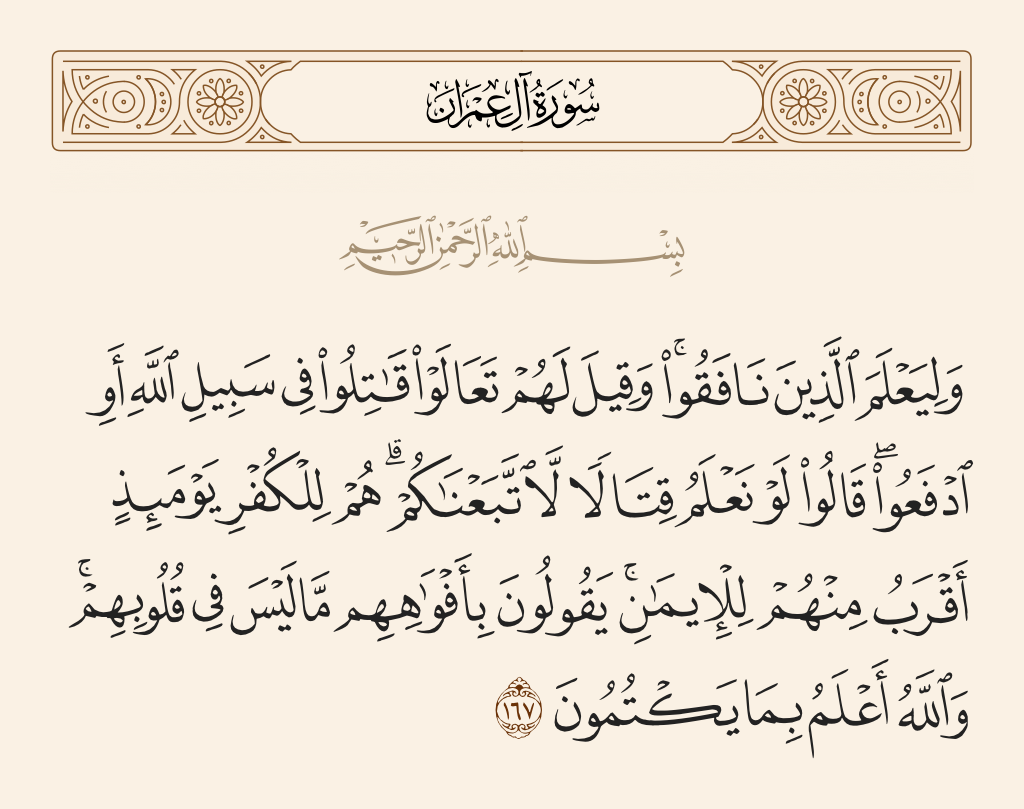 سُورَةُ آلِ عِمْرَان
بِسْمِ ٱللَّهِ ٱلرَّحْمَٰنِ ٱلرَّحِيمِ
وَلِيَعْلَمَ ٱلَّذِينَ نَافَقُوا۟ ۚ وَقِيلَ لَهُمْ تَعَالَوْا۟ قَـٰتِلُوا۟ فِى سَبِيلِ ٱللَّهِ أَوِ
ٱدْفَعُوا۟ ۖ قَالُوا۟ لَوْ نَعْلَمُ قِتَالًا لَّٱتَّبَعْنَـٰكُمْ ۗ هُمْ لِلْكُفْرِ يَوْمَئِذٍ
أَقْرَبُ مِنْهُمْ لِلْإِيمَـٰنِ ۚ يَقُولُونَ بِأَفْوَٰهِهِم مَّا لَيْسَ فِى قُلُوبِهِمْ ۚ
وَٱللَّهُ أَعْلَمُ بِمَا يَكْتُمُونَ ١٦٧